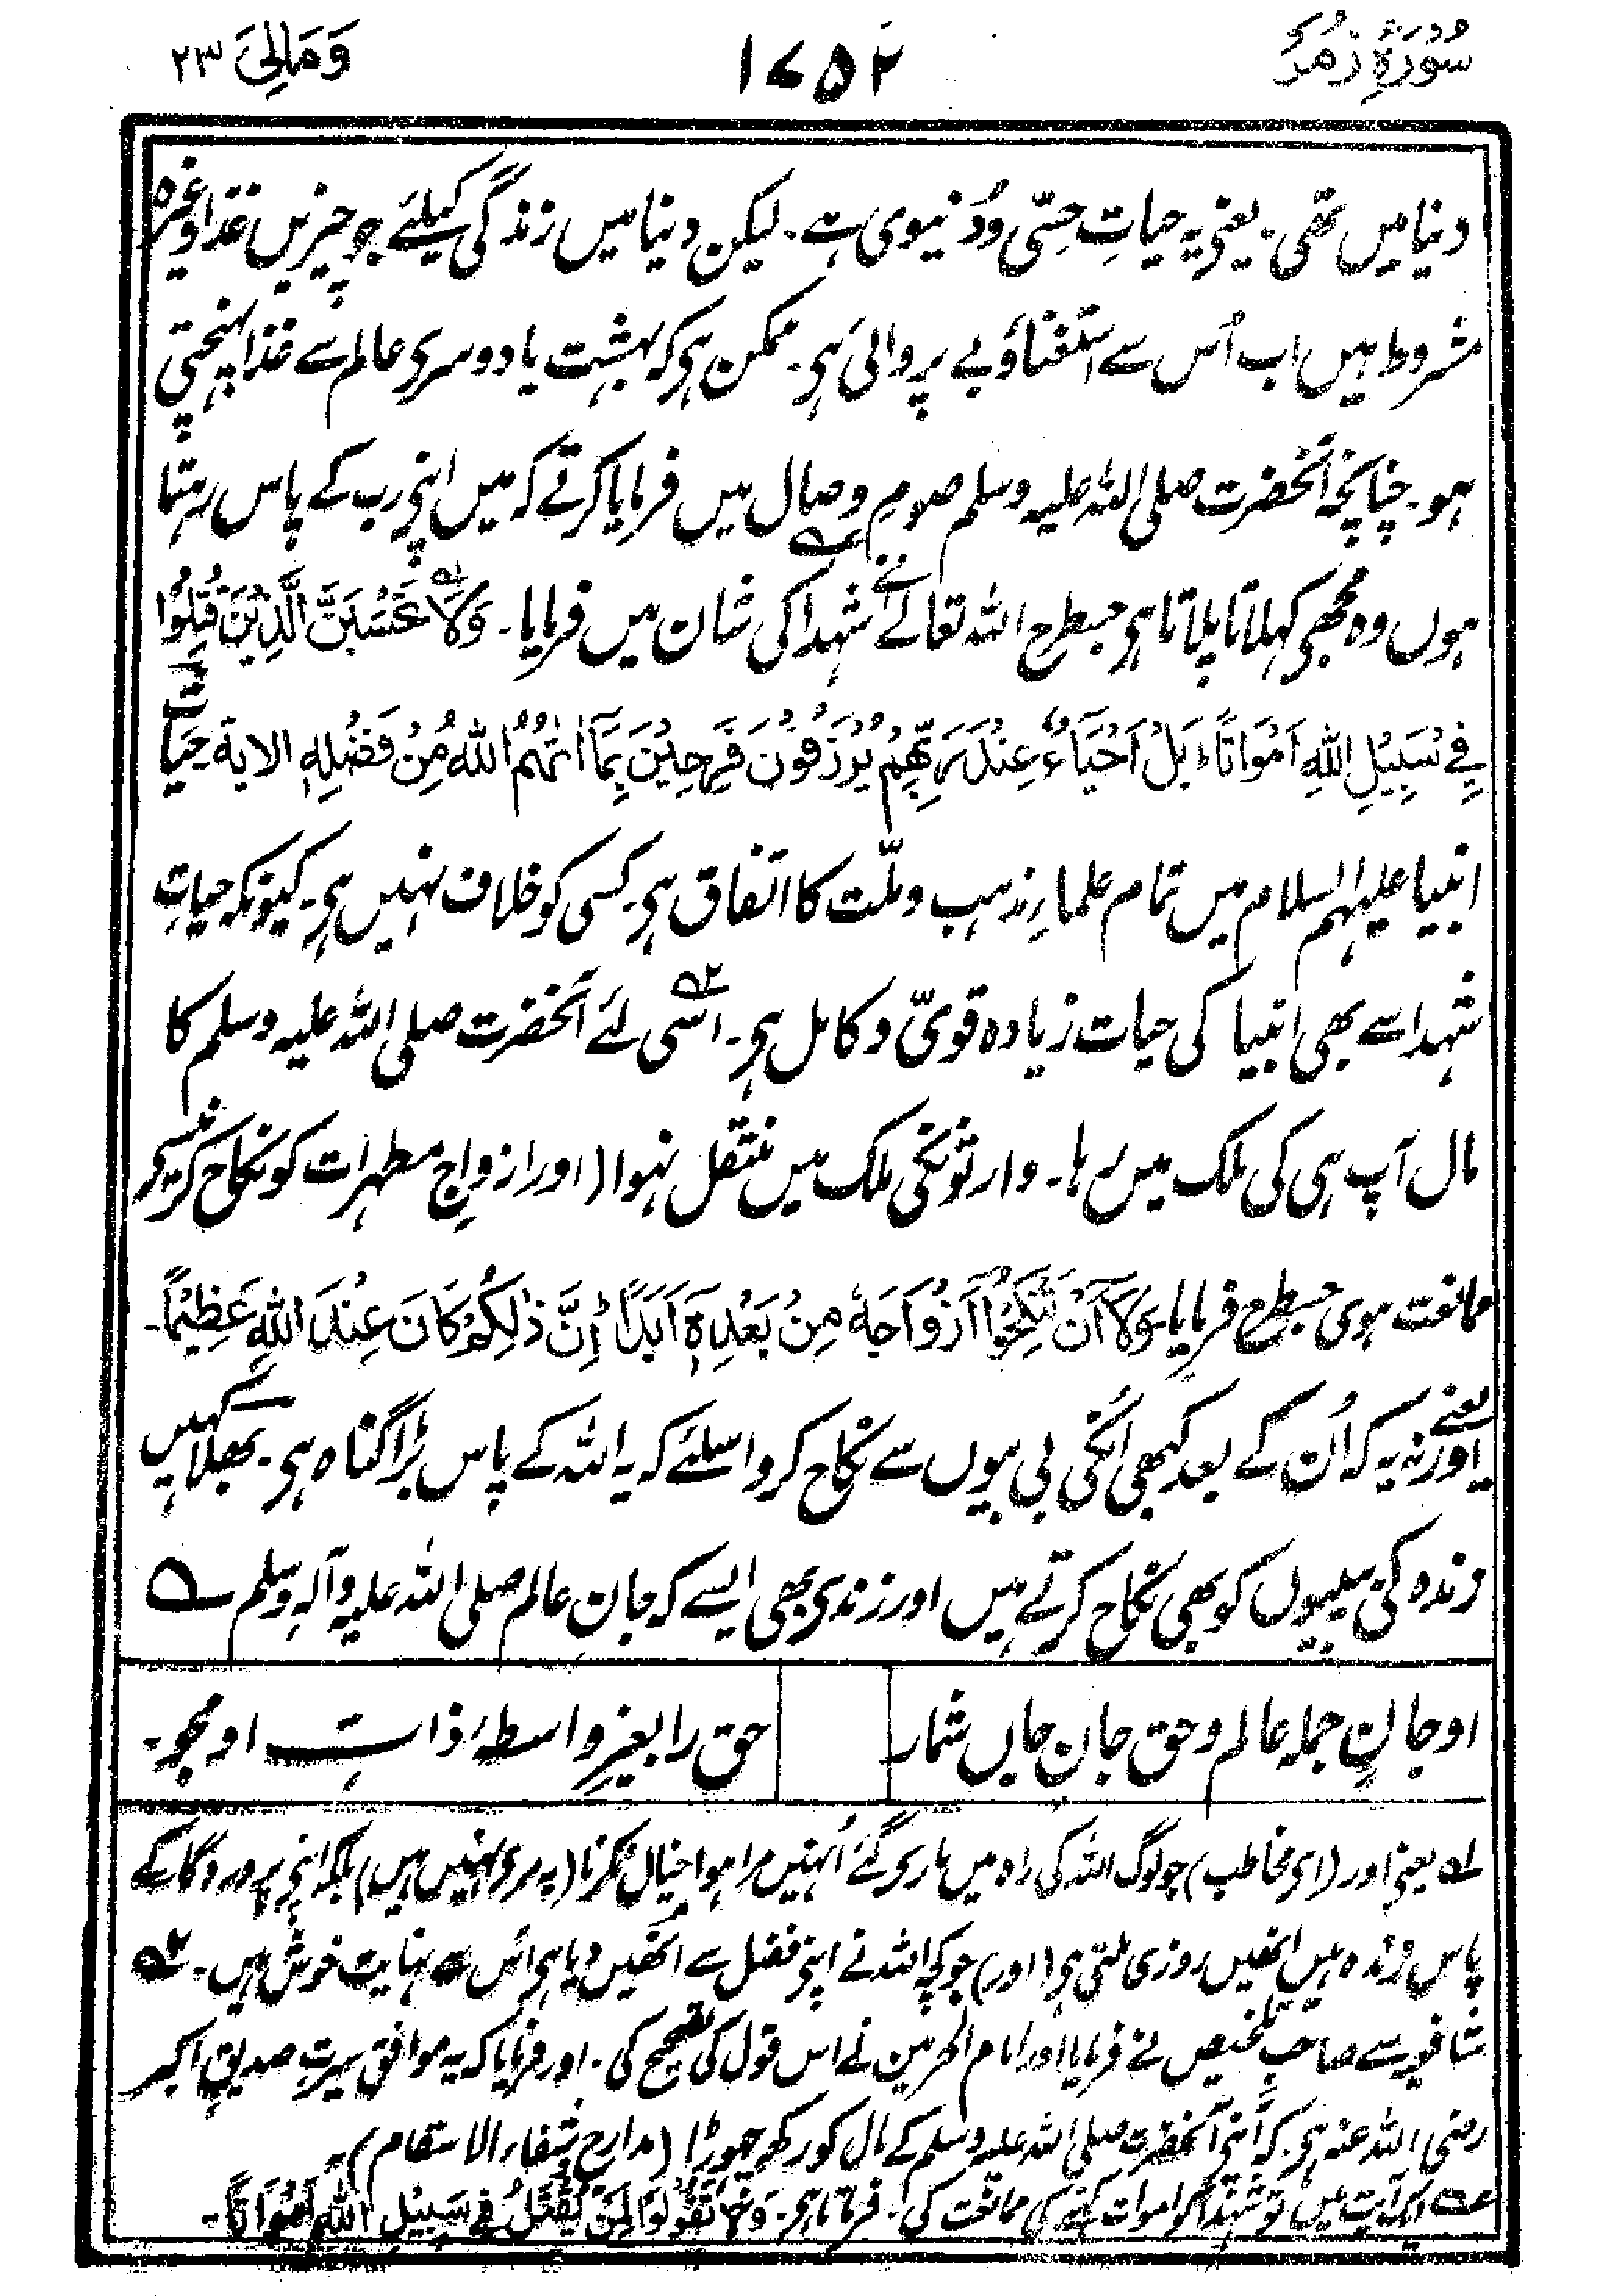 سُوْرَۃُ زُمَرْ
۱۷۵۲
وَمَالِیَ ۲۳
دنیا میں تھی. یعنی یہ حیاتِ حِسّی ودُنیوی ہے. لیکن دنیا میں زندگی کیلئے جو چیزیں غذا وغیرہ
مشروط ہیں اب اُس سے استغناؤبے پروائی ہی. ممکن ہی کہ بہشت یا دوسری عالم سے غذا پہنچتی
ہو. چنانچہ آنحضرت صلی اللہ علیہ وسلم صومِ وصال میں فرمایا کرتے کہ میں اپنی رب کے پاس رہتا
ہوں وہ مجھی کہلاتا پلاتا ہی جسطرح اللہ تعالےٰ نے شہدا کی شان میں فرمایا۔ وَلَا تَحْسَبَنَّ الَّذِیْنَ قُتِلُوْا
فِیْ سَبِیْلِ اللہِ اَمْوَاتًا بَلْ اَحْیَآءٌ عِنْدَ رَبِّھِمْ یُرْزَقُوْنَ فَرِحِیْنَ بِمَآ اٰتٰھُمُ اللہُ مِنْ فَضْلِہٖ الایۃ۔ حیات
انبیا علیہم السلام میں تمام علماءِ مذہب وملّت کا اتفاق ہی۔ کسی کو خلاف نہیں ہی۔ کیونکہ حیاتِ
شہدا سے بھی انبیا کی حیات زیادہ قویّ وکامل ہی۔ اسی۲ لئے آنحضرت صلی اللہ علیہ وسلم کا
مال آپ ہی کی ملک میں رہا۔ وارثونکی ملک میں منتقل نہوا (اور ازواجِ مطہرات کو نکاح کرنیسے
ممانعت ہوی جسطرح فرمایا۔ وَلَآ اَنْ تَنْکِحُوْٓا اَزْوَاجَہٗ مِنْ بَعْدِہٖٓ اَبَدًا اِنَّ ذٰلِکُمْ کَانَ عِنْدَ اللہِ عَظِیْمًا۔
یعنے اور نہ یہ کہ اُن کے بعد کبھی اُنکی بی بیوں سے نکاح کرو اسلئے کہ یہ اللہ کے پاس بڑا گناہ ہی۔ بھلا کہیں
زندہ کی بیبیوں کو بھی نکاح کرتے ہیں اور زندی بھی ایسے کہ جانِ عالم صلی اللہ علیہ وآلہٖ وسلم ؎
اوجانِ جملہ عالم وحق جانِ جاں شمار
حق را بغیرِ واسطۂ ذاتِ او مجو۔
۱؎ یعنی اور (ای مخاطب) جو لوگ اللہ کی راہ میں ماری گئے اُنہیں مرا ہوا خیال نکرنا (یہ مری نہیں ہیں) بلکہ اپنی پروردگار کے
پاس زندہ ہیں انھیں روزی ملتی ہی (اور) جو کچھ اللہ نے اپنی فضل سے انھیں دیا ہی اُس سے نہایت خوش ہیں۔ ۲؎
شافعیہ سے صاحبِ تلخیص نے فرمایا اور امام الحرمین نے اس قول کی تصحیح کی۔ اور فرمایا کہ یہ موافق سیرتِ صدیقِ اکبر
رضی اللہ عنہ ہی کہ اُنہی آنحضرت صلی اللہ علیہ وسلم کے مال کو رکھ چھوڑا (مدارج شفاء الاسقام)
؎ ایک آیت میں تو شہدا کو اموات کہنے کی ممانعت کی۔ فرماتا ہی۔ وَلَا تَقُوْلُوْا لِمَنْ یُّقْتَلُ فِیْ سَبِیْلِ اللہِ اَمْوَاتًا۔